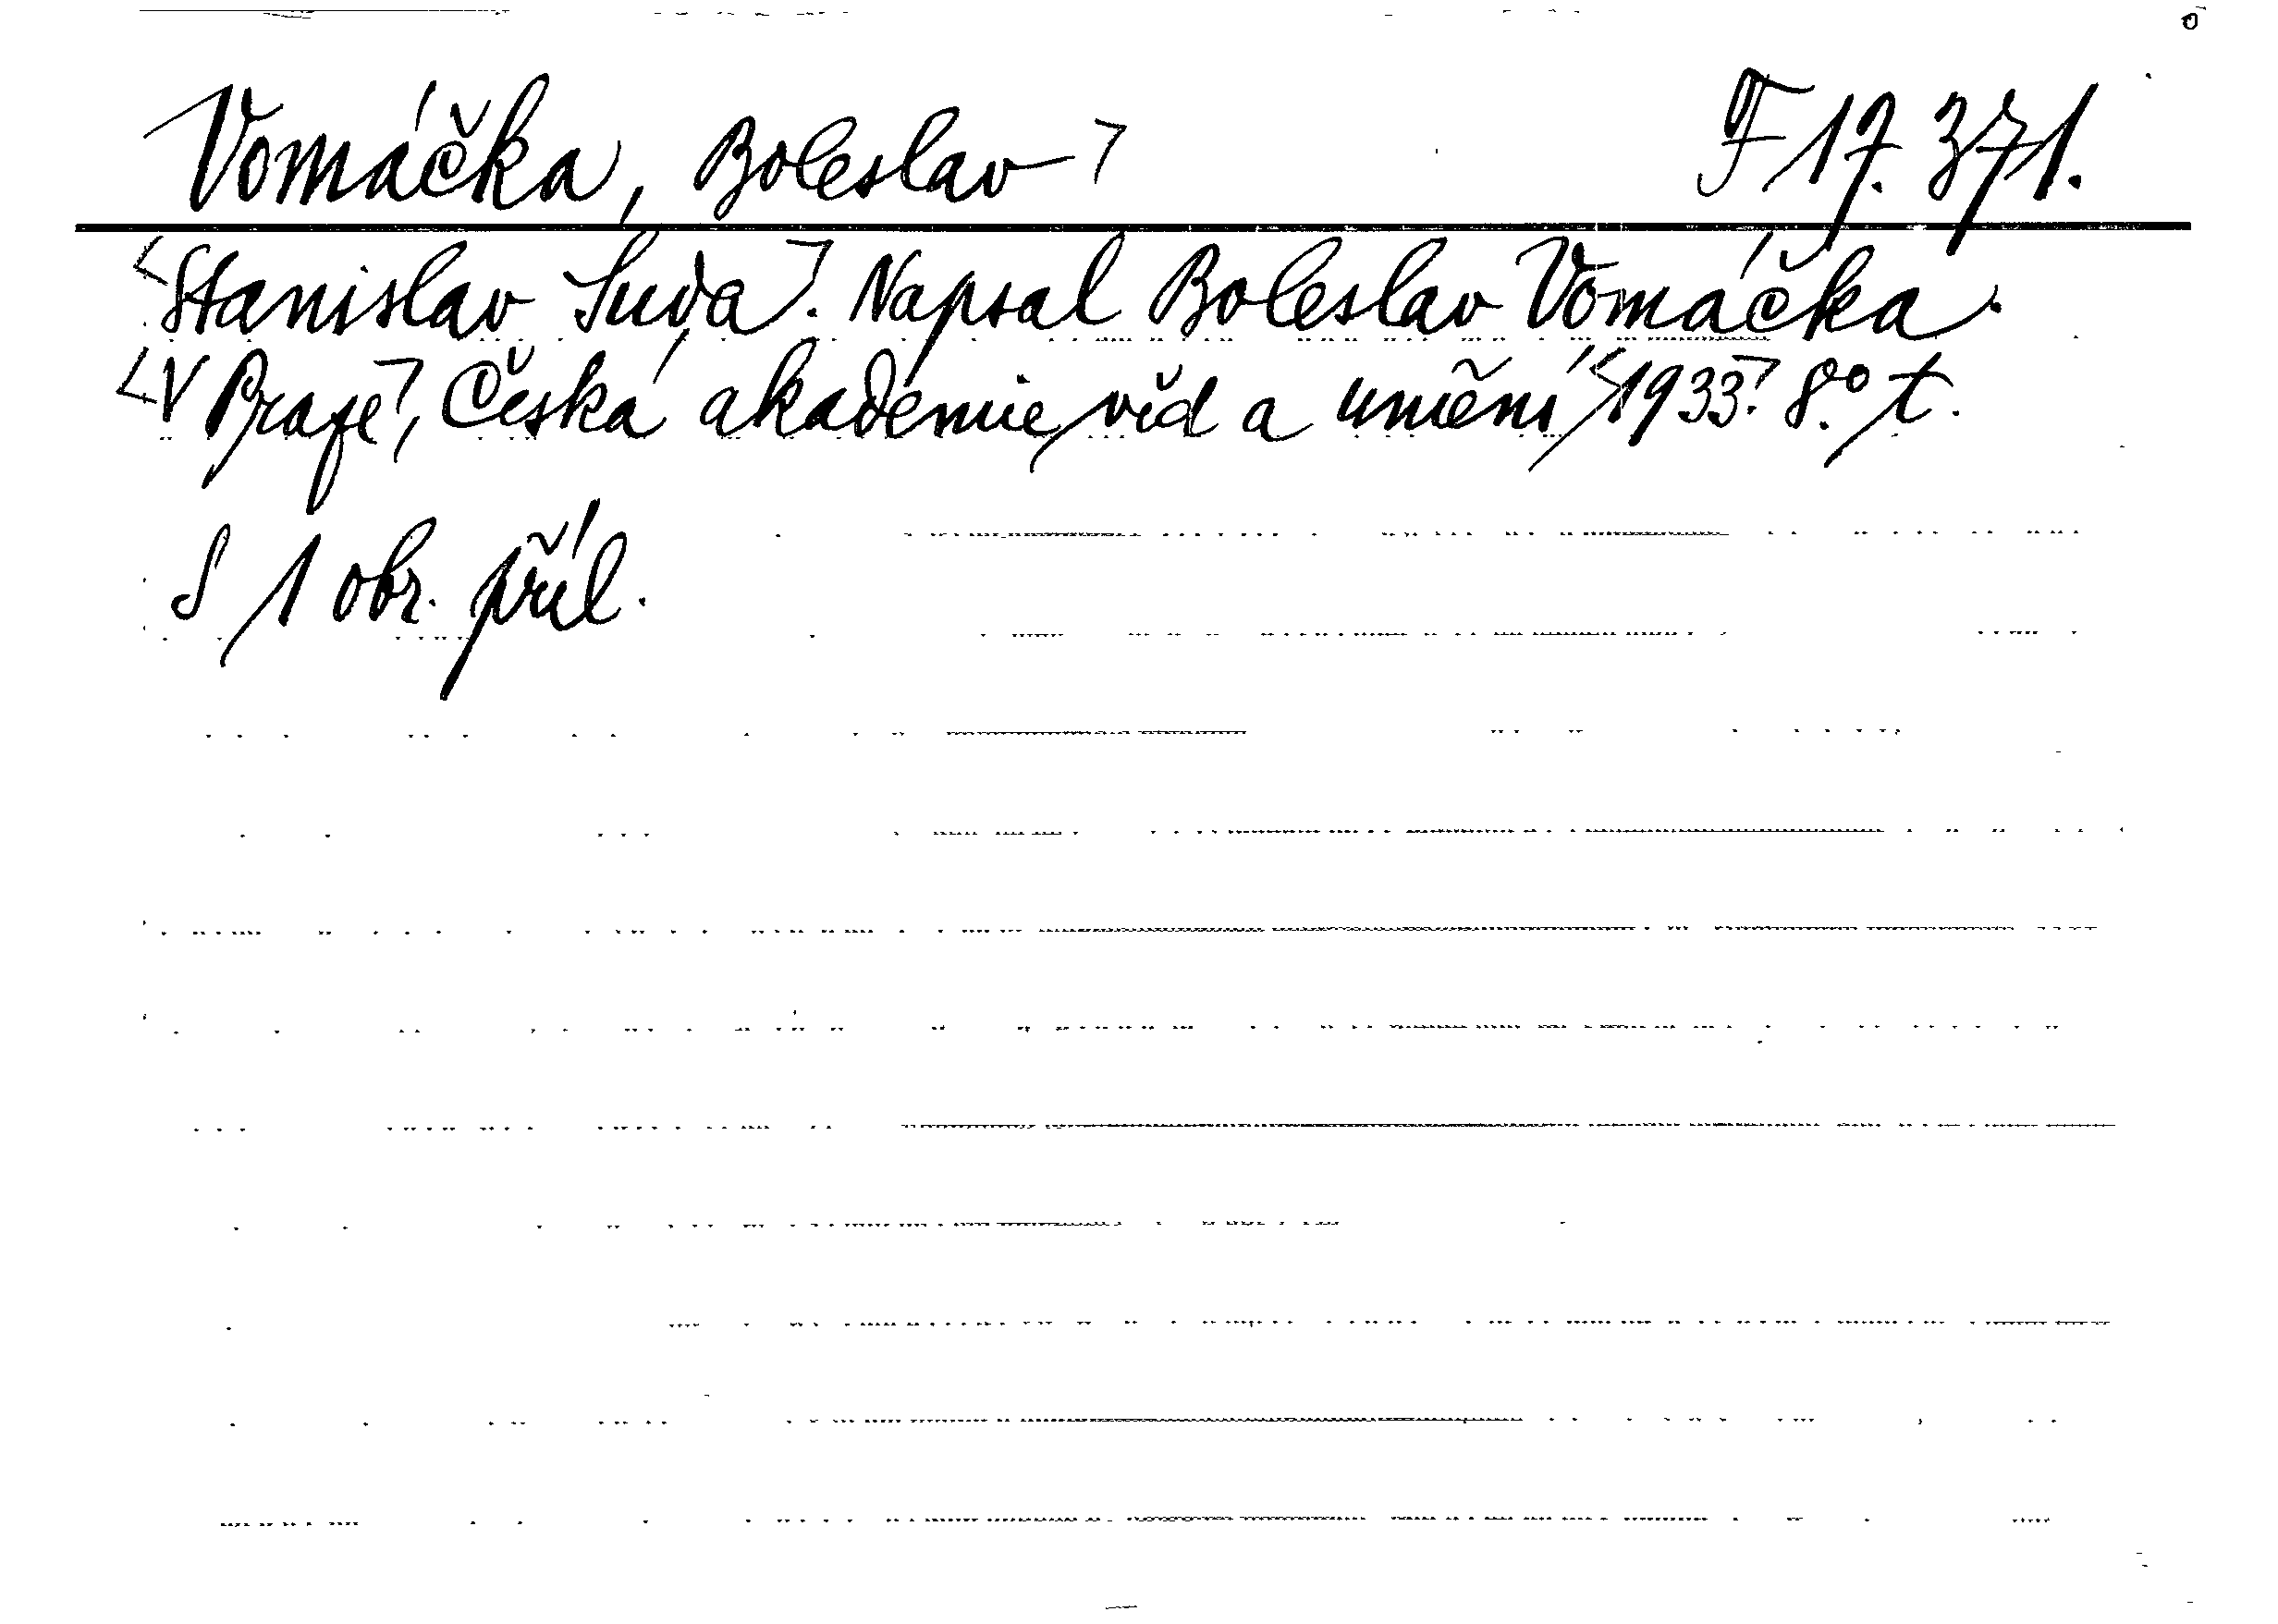 Vomáčka, Boleslav F 17.371.
Stanislav Suda. Napsal Boleslav Vomáčka.
V Praze, Česká akademie věd a umění 1933. 8.° t.
S 1 obr. příl.